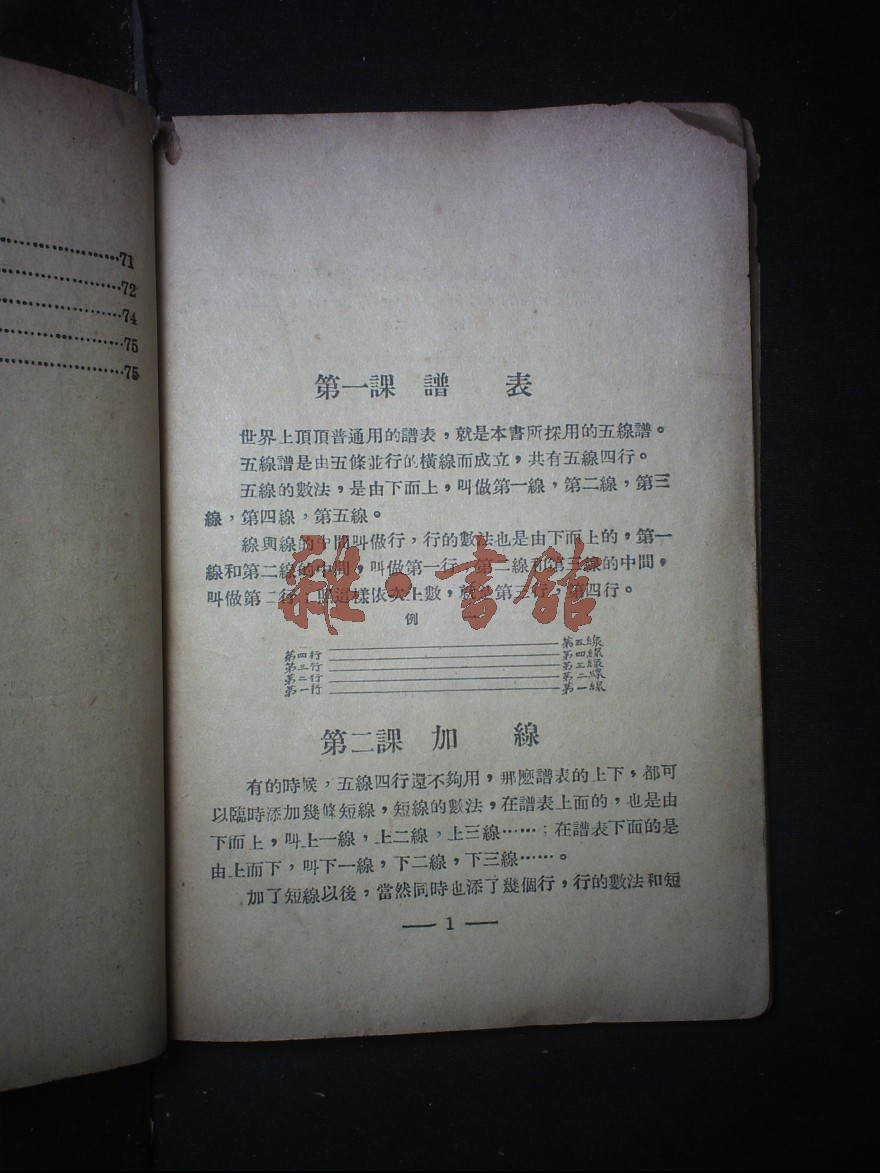 71
72
74
75
75
第一課 譜 表
世界上頂頂普通用的譜表，就是本書所採用的五線譜。
五線譜是由五條並行的橫線而成立，共有五線四行。
五線的數法，是由下而上，叫做第一線，第二線，第三
線，第四線，第五線。
線與線的中間叫做行，行的數法也是由下而上的，第一
線和第二線的中間，叫做第一行，第二線和第三線的中間，
叫做第二行，照這樣依次上數，就是第三行，第四行。
例 一
第五線
第四行 第四線
第三行 第三線
第二行 第二線
第一行 第一線
第二課 加 線
有的時候，五線四行還不夠用，那麽譜表的上下，都可
以臨時添加幾條短線，短線的數法，在譜表上面的，也是由
下而上，叫上一線，上二線，上三線……；在譜表下面的是
由上而下，叫下一線，下二線，下三線……。
加了短線以後，當然同時也添了幾個行，行的數法和短
— 1 —
雜·書館